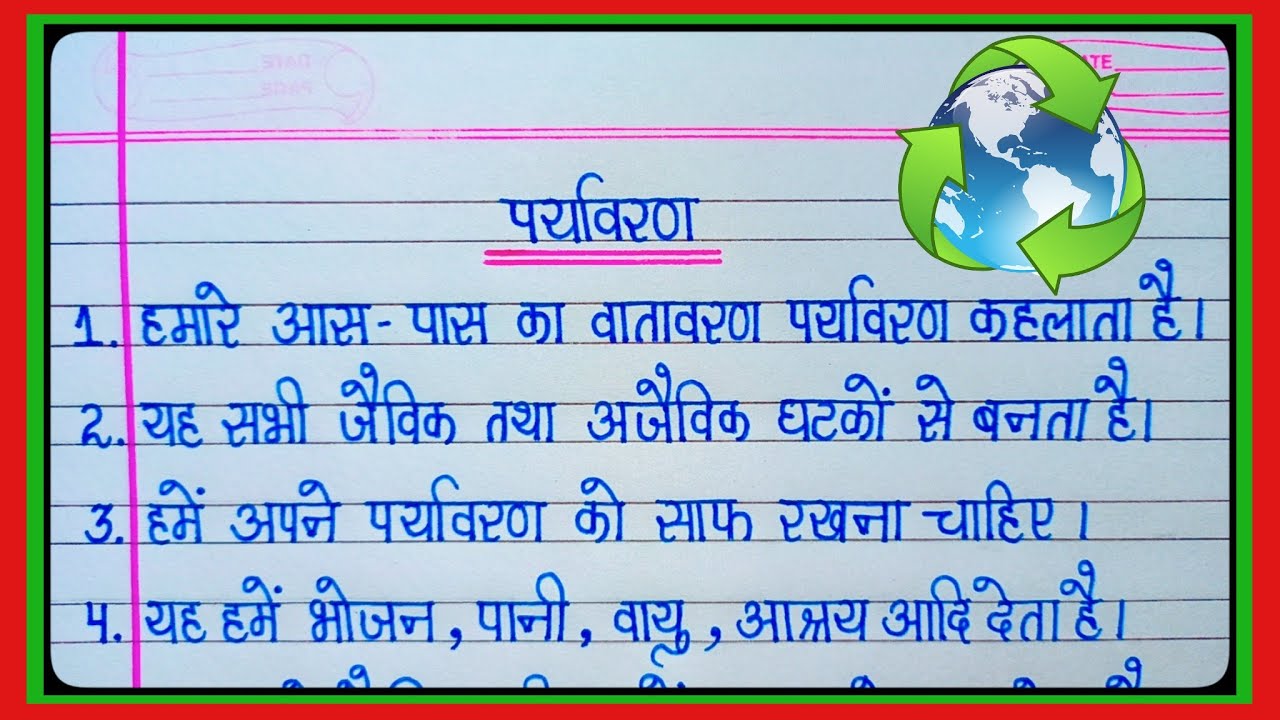 DATE
PAGE
ATE
पर्यावरण
1. हमारे आस-पास का वातावरण पर्यावरण कहलाता है।
2. यह सभी जैविक तथा अजैविक घटकों से बनता है।
3. हमें अपने पर्यावरण को साफ रखना चाहिए।
4. यह हमें भोजन, पानी, वायु, आश्रय आदि देता है।